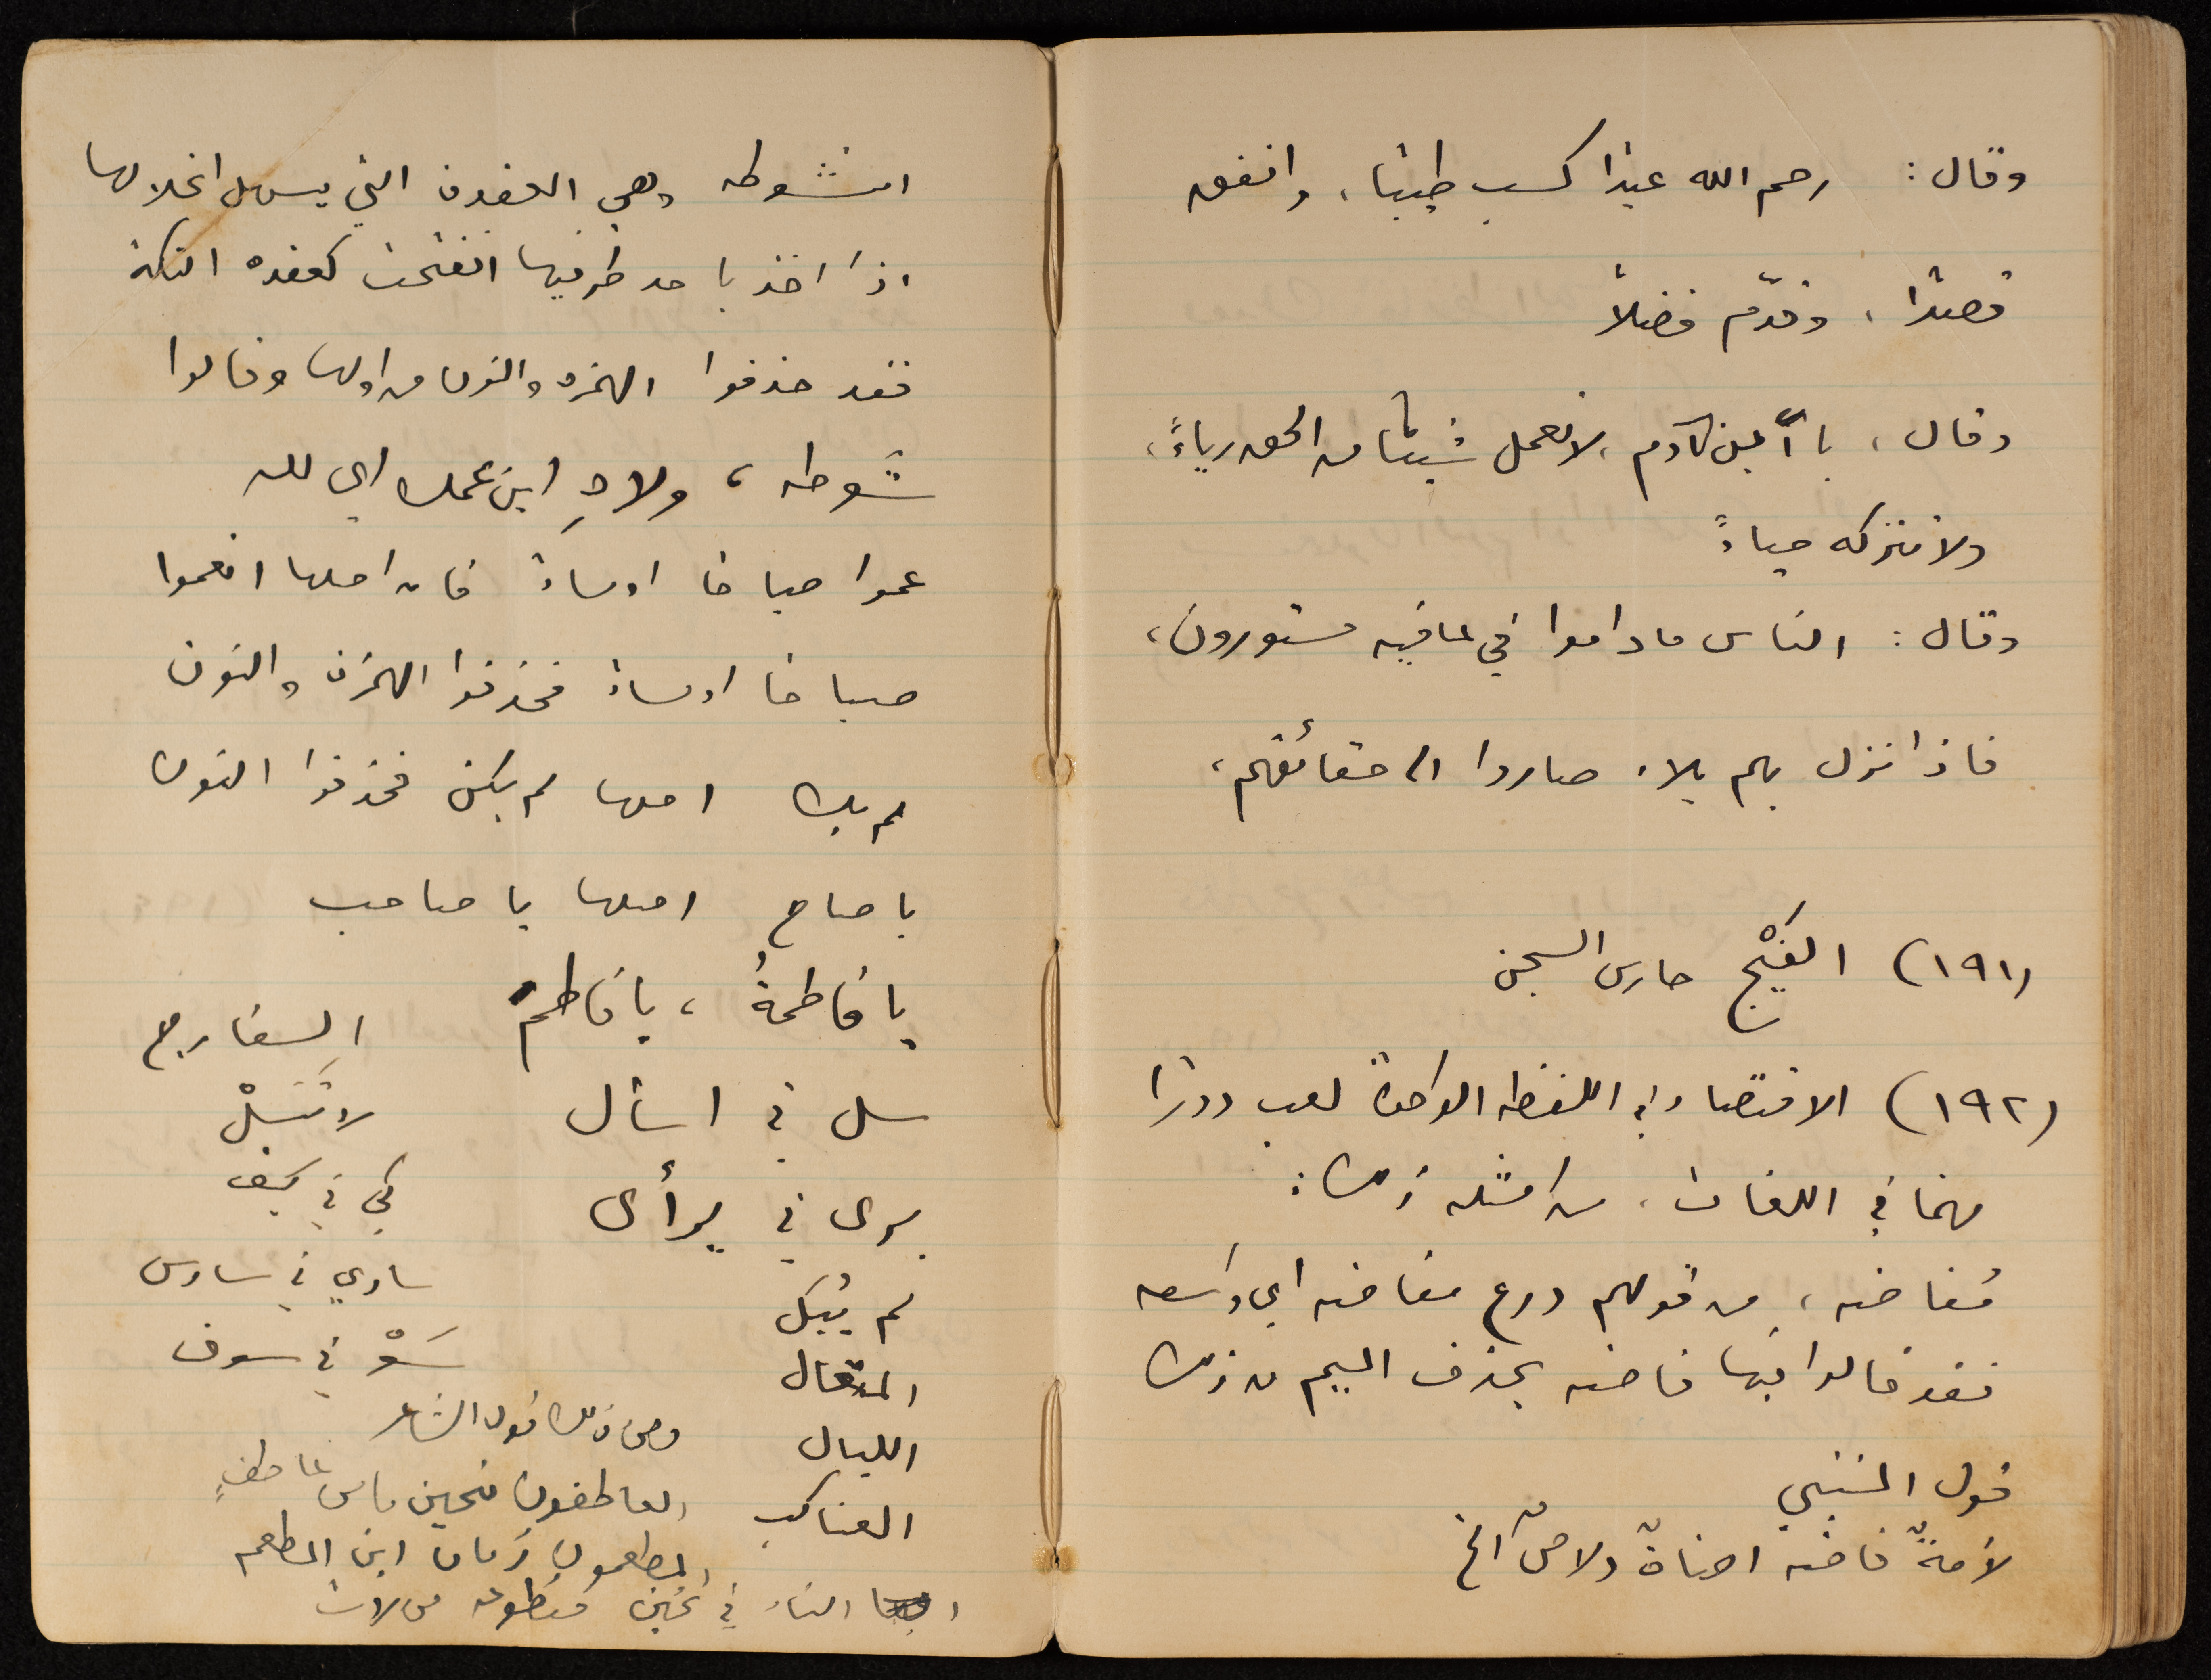 وقال : رحم الله عبدًا كسب طيبًا ، وانفق
قصدًا ، وقدّم فضلاً
وقال ، يا ابن آدم ، لا تعمل شيئًا من الحق رياءً ،
ولا تتركه حياءً
وقال : الناس ما داموا في عافيه مستورون ،
فاذا نزل بهم بلاء صاروا الى حقائقهم ،
(١٩١) الفَيْج حارس السجن
(١٩٢) الاقتصاد في اللفظه الواحدة لعب دورًا
مهما في اللغات ، من امثله ذلك :
مُفاضه ، من قولهم درع مفاضه اي واسعه
فقد قالوا فيها فاضه بحذف الميم من ذلك
قول المتنبي
لأمةٌ فاضه اضاةٌ دلاصٌ الخ
انشوطه وهي العقدة التي يسهل انحلالها
اذا اخذ باحد طرفيها انفتحت كعقده التكة
فقد حذفوا الهمزه والنون من اولها وقالوا
شوطه ، ولاهِ ابن عمك اي لله
عموا صباحًا او مساءً فان اصلها انعموا
صباحًا او مساءً فحذفوا الهمزة والنون
لم يك اصلها لم يكن فحذفوا النون
يا صاح اصلها يا صاحب
يا فاطمةُ ، يا فاطم السفارج
سل في اسأل لا تُبَلْ
يرى في يرأى كي في كيف
لم يُبَل سادي في سادس
المتعال سَوْ في سوف
الليال ومن ذلك قول الشاعر
العناكب العاطفون تحين ما من عاطفٍ
المطعمون زمان اين المطعم
التاء في تحين مقطوعه من لات